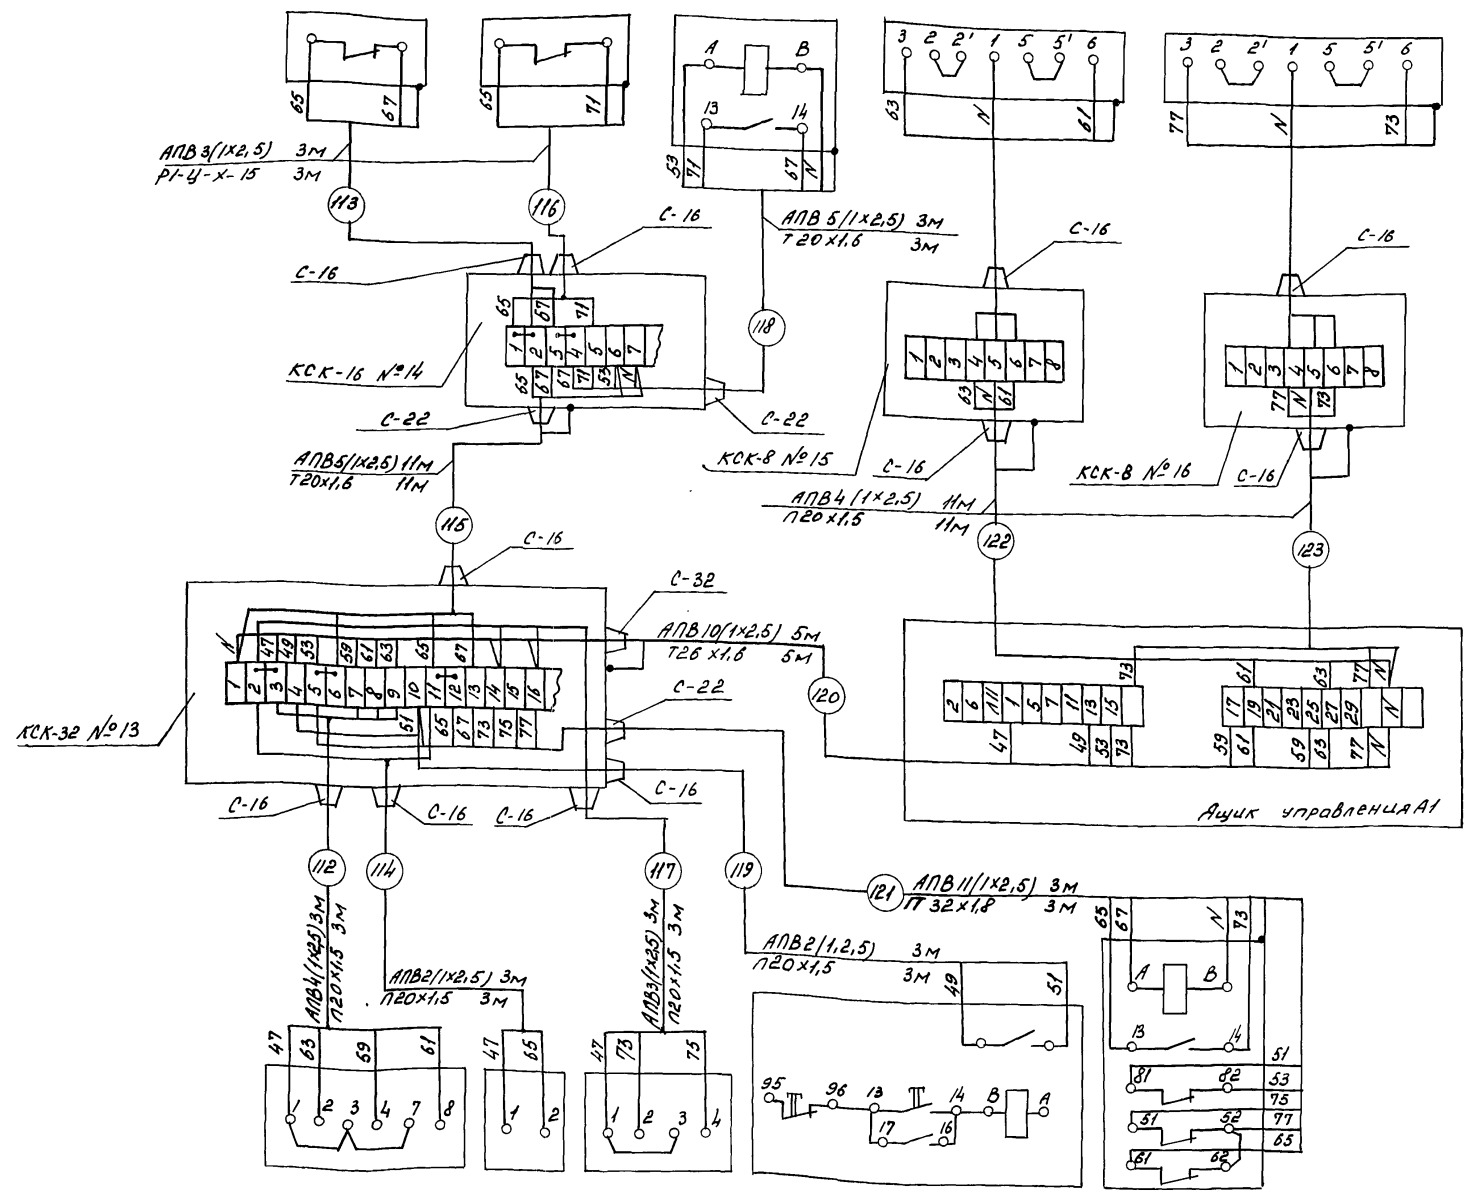 65 67
65 71
А В
13 14
53 71 67 N
3 2 2' 1 5 5' 6
63 N 61
3 2 2' 1 5 5' 6
77 N 73
АПВ 3(1×2,5) 3м
Р1-Ц-Х-15 3м
113
116
С-16
С-16
АПВ 5(1×2,5) 3м
Т20×1,6 3м
118
С-16
С-16
65 67 71
1 2 3 4 5 6 7
65 67 67 71 53 N
КСК-16 №14
С-22
С-22
1 2 3 4 5 6 7 8
63 N 61
КСК-8 №15
С-16
1 2 3 4 5 6 7 8
77 N 73
КСК-8 №16
С-16
АПВ5(1×2,5) 11м
Т20×1,6 11м
115
С-16
АПВ4(1×2,5) 11м
П20×1,5 11м
122
123
С-32
АПВ10(1×2,5) 5м
Т26×1,6 5м
120
С-22
N 47 49 53 59 61 63 65 67
1 2 3 4 5 6 7 8 9 10 11 12 13 14 15 16
51 65 67 73 75 77
КСК-32 №13
С-16
С-16
С-16
С-16
73 61 63 77 N
2 6 1 5 7 11 13 15
17 19 21 23 25 27 29 N
47 49 53 73 59 61 59 63 77 N
Ящик управления А1
112
114
117
119
121
АПВ11(1×2,5) 3м
ПТ 32×1,8 3м
АПВ4(1×2,5) 3м
П20×1,5 3м
АПВ2(1×2,5) 3м
П20×1,5 3м
АПВ3(1×2,5) 3м
П20×1,5 3м
АПВ2(1,2,5) 3м
П20×1,5 3м
47 63 59 61
1 2 3 4 7 8
47 65
1 2
47 73 75
1 2 3 4
49 51
95 96 13 14 В А
17 16
65 67 N 73
А В
13 14
51
81 82 53
75
51 52 77
65
61 62